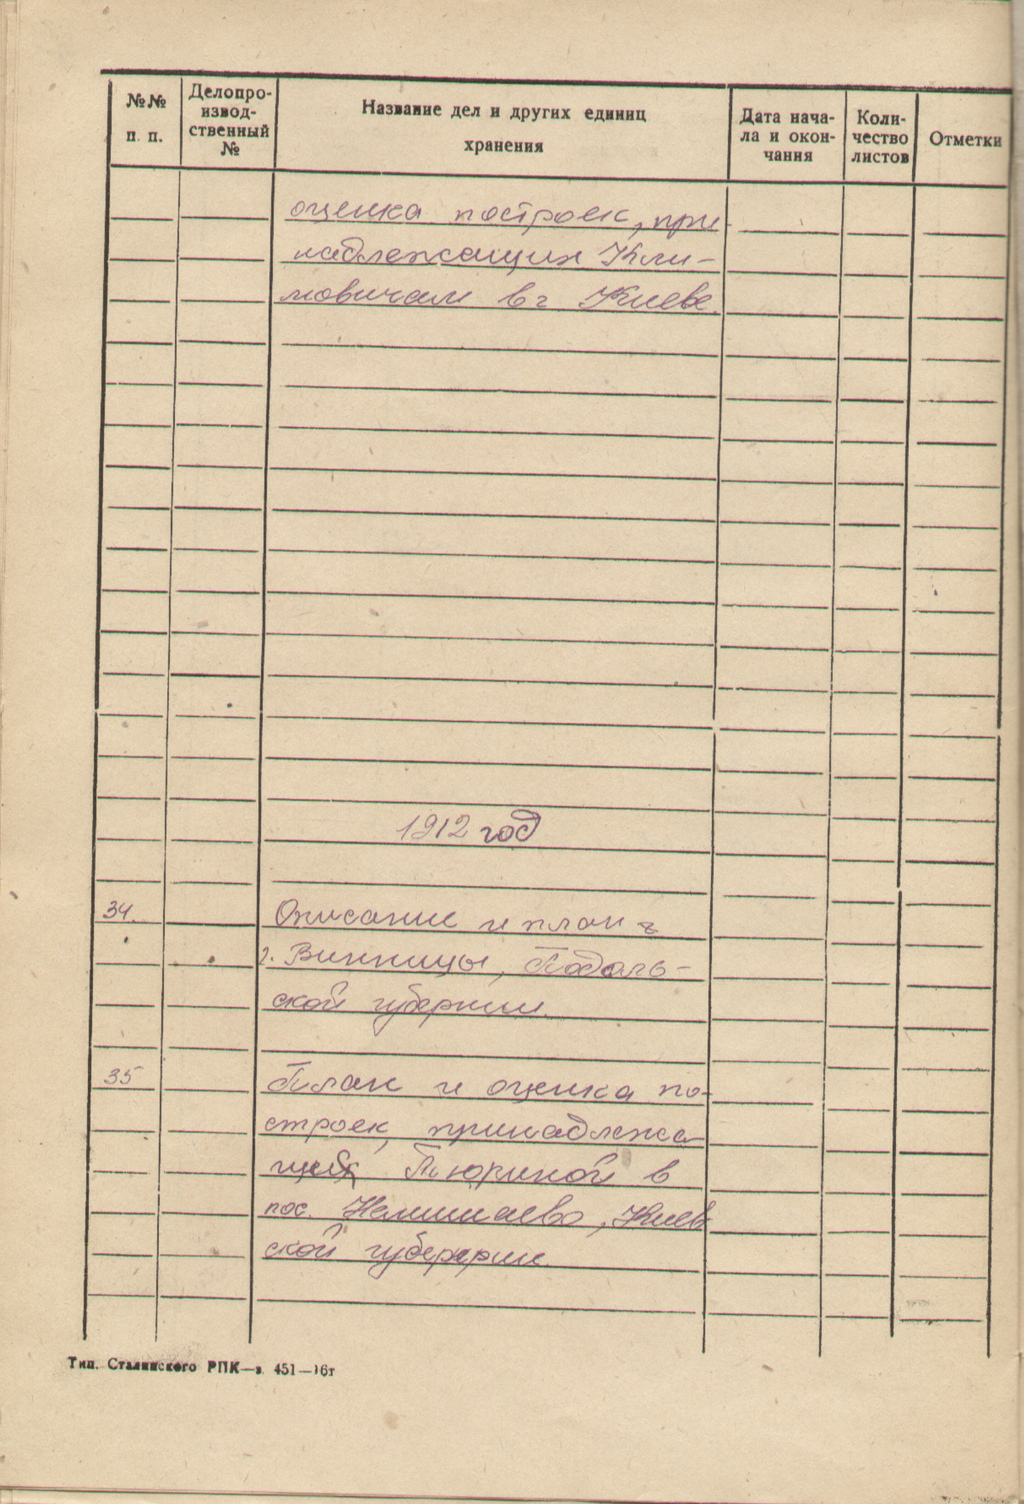 №№ п. п.
Делопро-
извод-
ственный
№
Название дел и других единиц
хранения
Дата нача-
ла и окон-
чания
Коли-
чество
листов
Отметки
оценка построек, при-
надлежащих Кли-
мовичам в г. Киеве.
1912 год
34. Описание и план
г. Винницы, Подоль-
ской губернии.
35 План и оценка по-
строек, принадлежа
щих Тюриной в
пос. Немишаево, Киев
ской губернии.
Тип. Сталинского РПК—з. 451—16т